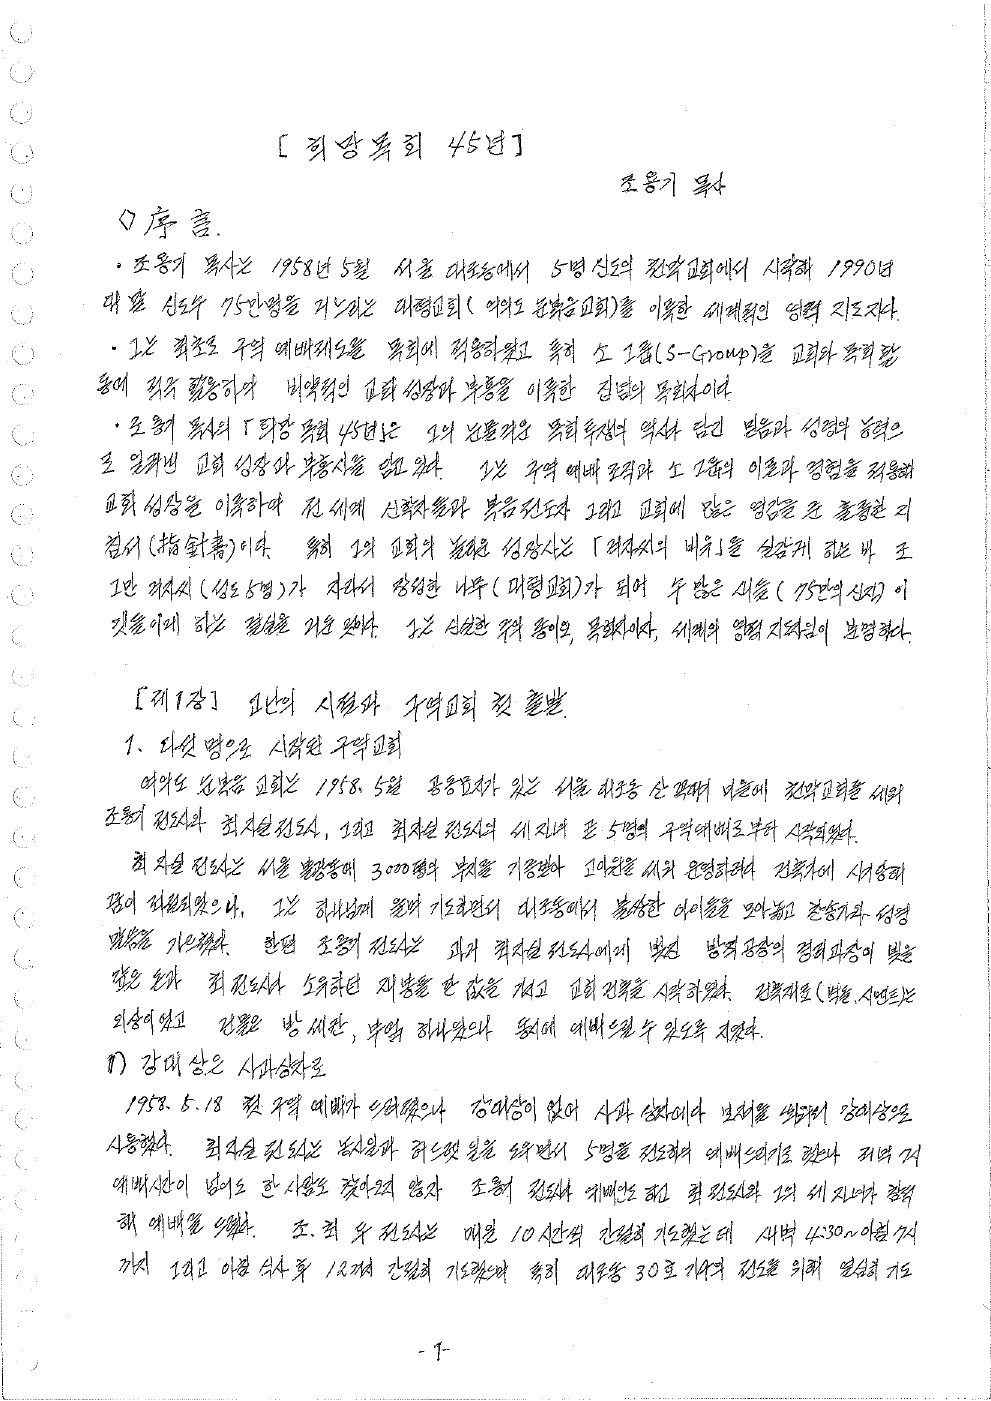 [ 희망목회 45년 ]
조용기 목사
◇ 序言.
· 조용기 목사는 1958년 5월 서울 대조동에서 5명 신도의 천막교회에서 시작해 1990년
대 말 신도수 75만명을 거느리는 대형교회( 여의도 순복음교회)를 이룩한 세계적인 영적 지도자다.
· 그는 최초로 구역 예배제도를 목회에 적용하였고 특히 소그룹(S-Group)을 교회와 목회 활
동에 적극 활용하여 비약적인 교회 성장과 부흥을 이룩한 집념의 목회자이다.
· 조용기 목사의 「희망 목회 45년」은 그의 눈물겨운 목회 투쟁의 역사와 담긴 믿음과 성령의 능력으
로 일궈낸 교회 성장과 부흥사를 담고 있다. 그는 구역 예배 조직과 소그룹의 이론과 경험을 적용해
교회 성장을 이룩하여 전 세계 신학자들과 복음전도자 그리고 교회에 많은 영감을 준 훌륭한 지
침서(指針書)이다. 특히 그의 교회의 놀라운 성장사는 「겨자씨의 비유」를 실감케 하는 바 조
그만 겨자씨( 성도 5명)가 자라서 장성한 나무( 대형교회)가 되어 수 많은 새들( 75만의 신자)이
깃들이게 하는 결실을 거둔 것이다. 그는 신실한 주의 종이요, 목회자이자, 세계의 영적 지도자임이 분명하다.
[제1장] 고난의 시절과 구역교회 첫 출발.
1. 다섯 명으로 시작된 구역교회
여의도 순복음 교회는 1958. 5월 공동묘지가 있는 서울 대조동 산 꼭대기 마을에 천막교회를 세워
조용기 전도사와 최자실 전도사, 그리고 최자실 전도사의 세 자녀 든 5명의 구역예배로부터 시작되었다.
최자실 전도사는 서울 불광동에 3000평의 부지를 기증받아 고아원을 세워 운영하려다 건축가에 사기당해
꿈이 좌절되었으나, 그는 하나님께 울며 기도하면서 대조동에서 불쌍한 아이들을 모아놓고 찬송가와 성경
말씀을 가르쳤다. 한편 조용기 전도사는 과거 최자실 전도사에게 빚진 방직공장의 경리과장이 빚을
갚은 돈과 최 전도사가 소유하던 재봉틀 판 값을 가지고 교회 건축을 시작하였다. 건축재료(벽돌, 시멘트)는
외상이었고 건물은 방 세칸, 부엌 하나였으나 동시에 예배드릴 수 있도록 지었다.
1) 강대상은 사과상자로
1958. 5. 18 첫 구역 예배가 드려졌으나 강대상이 없어 사과 상자에다 보자기를 씌워 강대상으로
사용했다. 최자실 전도사는 농사일과 허드렛 일을 도우면서 5명을 전도하여 예배드리기로 했으나 저녁 7시
예배시간이 넘어도 한 사람도 찾아오지 않자 조용기 전도사 예배인도 하고 최 전도사와 그의 세 자녀가 참석
해 예배를 드렸다. 조. 최 두 전도사는 매일 10시간씩 간절히 기도했는데 새벽 4:30~아침 7시
까지 그리고 아침 식사 후 12시까지 간절히 기도했으며 특히 대조동 30호 가구의 전도를 위해 열심히 기도
-1-